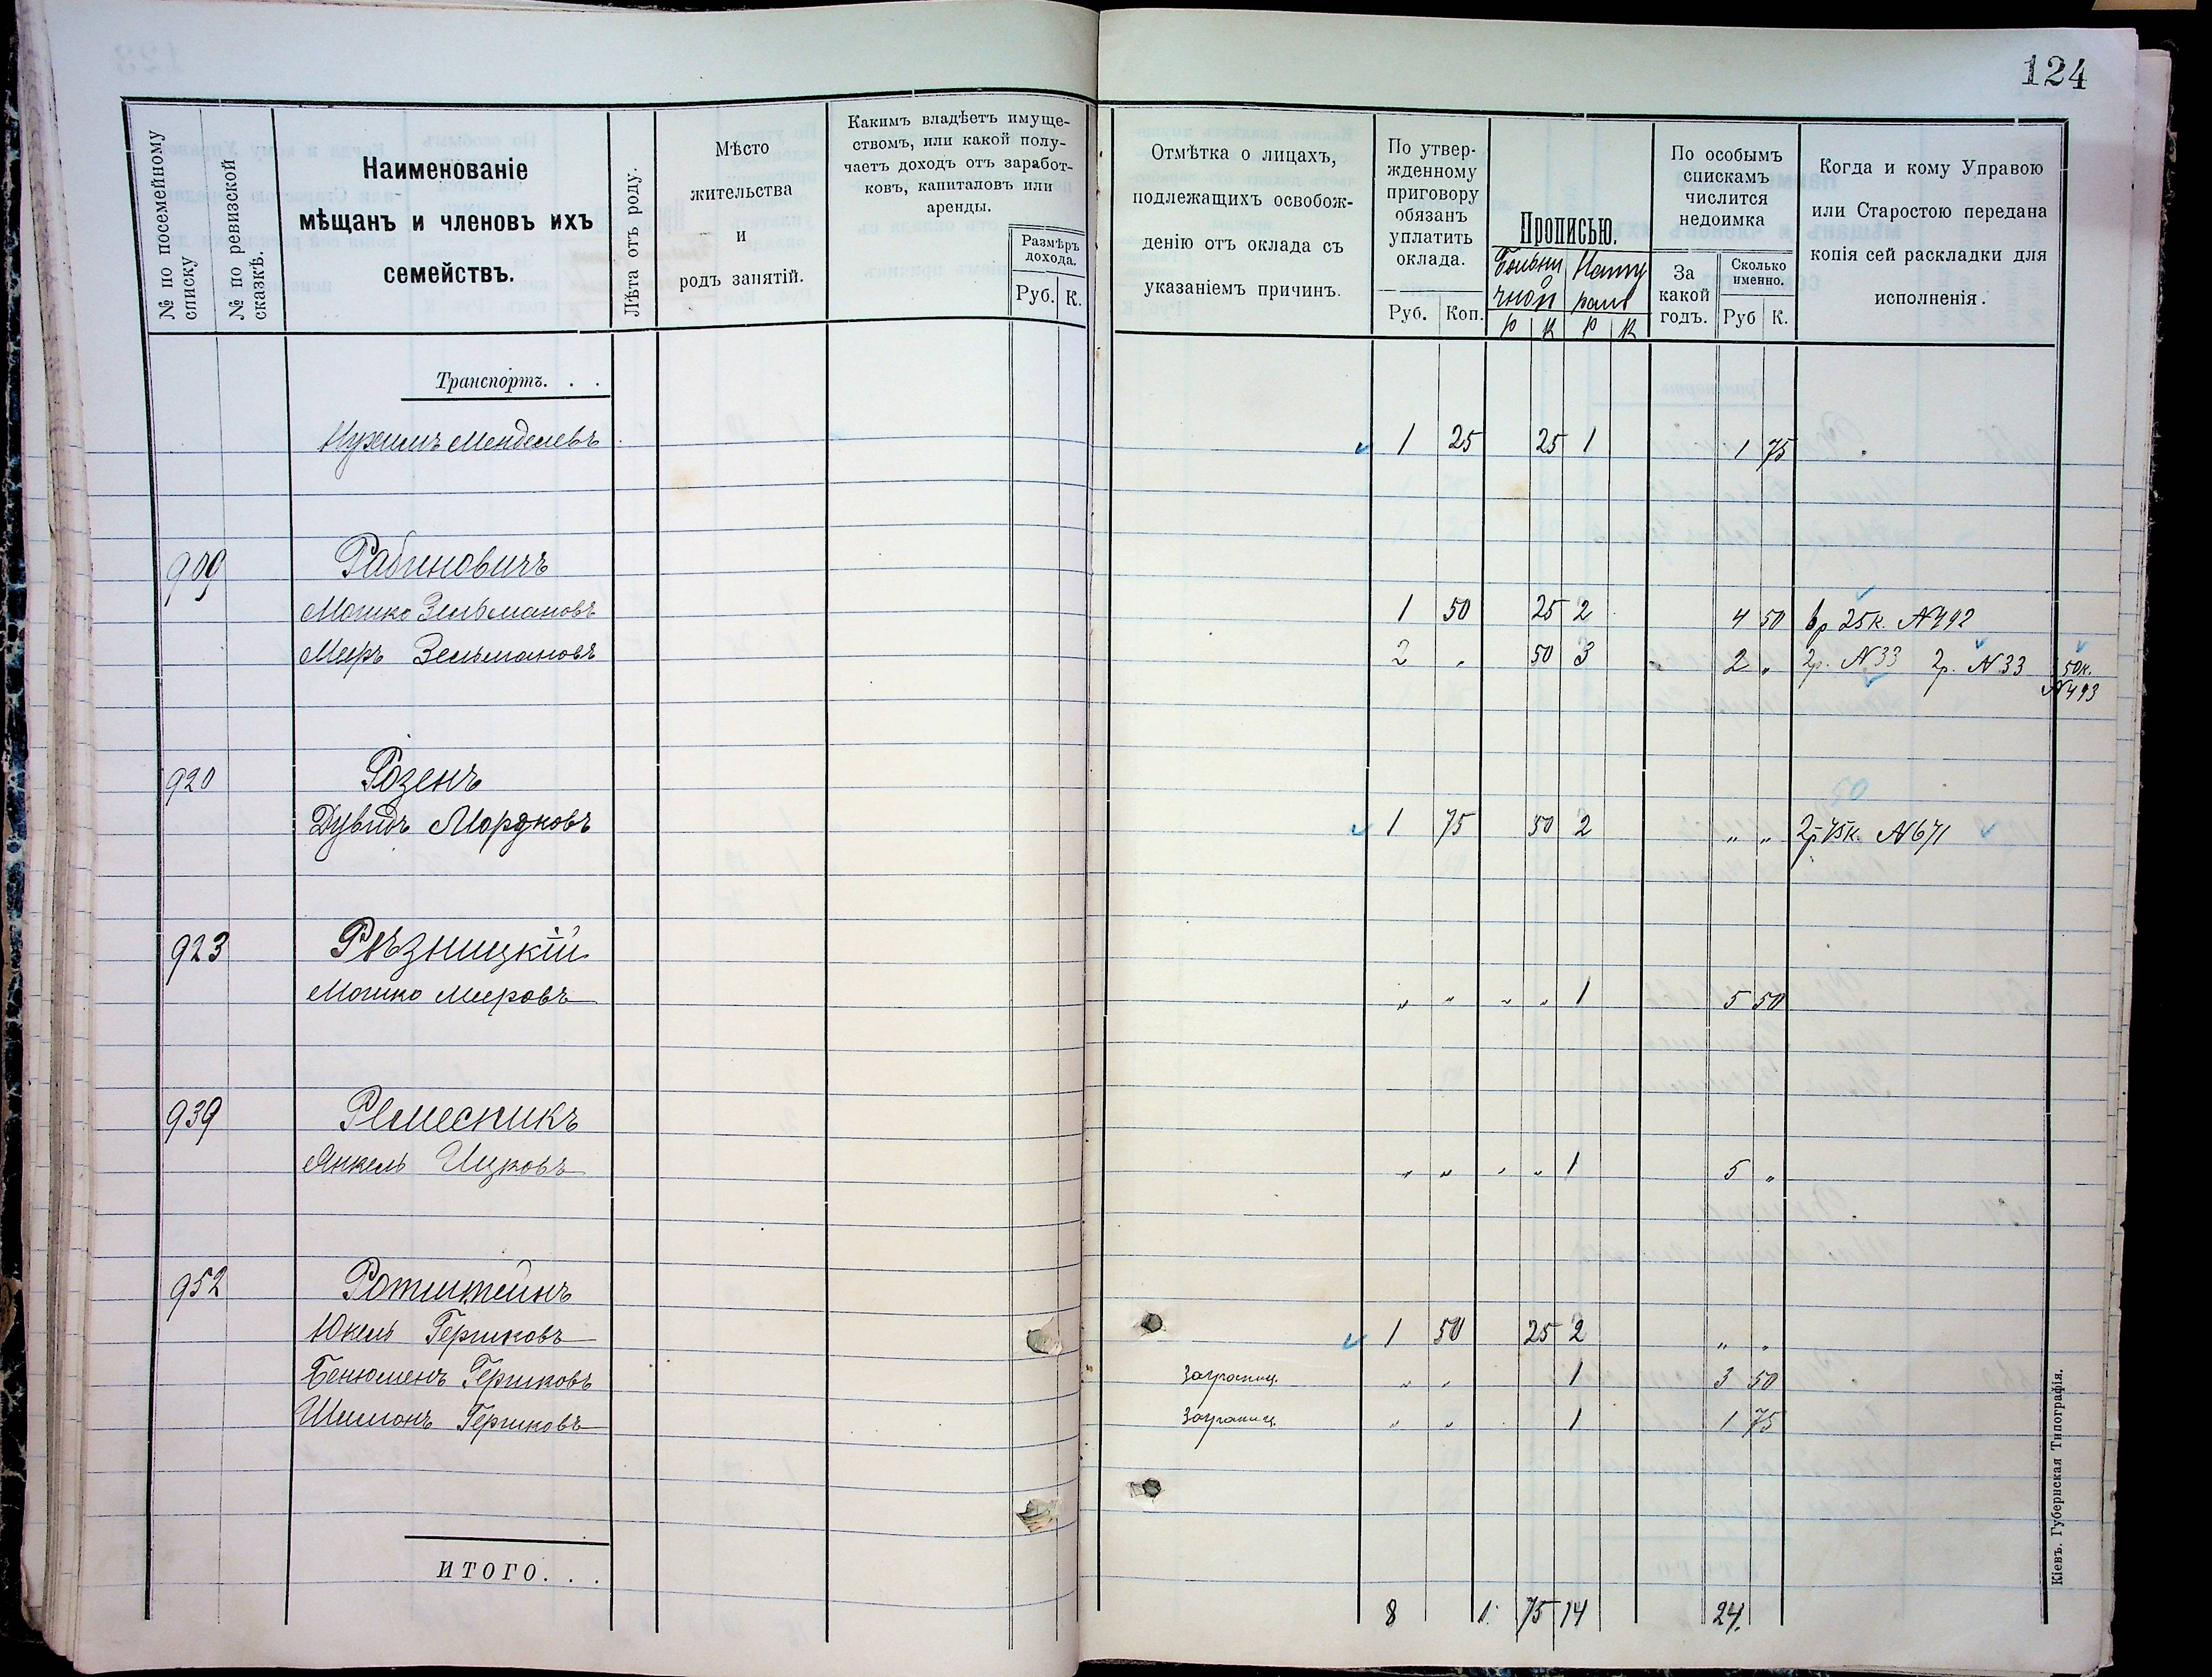 124
№ по посемейному списку
№ по ревизской сказкѣ.
Наименованіе
мѣщанъ и членовъ ихъ
семействъ.
Лѣта отъ роду.
Мѣсто
жительства
и
родъ занятій.
Какимъ владѣетъ имуще-
ствомъ, или какой полу-
чаетъ доходъ отъ заработ-
ковъ, капиталовъ или
аренды.
Размѣръ
дохода.
Руб. К.
Отмѣтка о лицахъ,
подлежащихъ освобож-
денію отъ оклада съ
указаніемъ причинъ.
По утвер-
жденному
приговору
обязанъ
уплатить
оклада.
Руб. Коп.
Прописью.
Р К Р К
По особымъ
спискамъ
числится
недоимка
За
какой
годъ.
Сколько
именно.
Руб К.
Когда и кому Управою
или Старостою передана
копія сей раскладки для
исполненія.
Транспортъ. . .
Нухимъ Менделевъ 1 25 25 1 1 75
909 Рабиновичъ
Мошко Зельмановъ 1 50 25 2 4 50 25к. №492
Мееръ Зельмановъ 2 „ 50 3 2 „ 2р. №33 2р. №33 50к.
№493
920 Розенъ
50
Дувидъ Мордковъ 1 75 50 2 „ „ 2р 75к. №671
923 Рѣзницкій
Мошко Мееровъ „ „ „ „ 1 5 50
939 Ремесникъ
Янкель Ицковъ „ „ „ „ 1 5 „
952 Ротштейнъ
Юкель Гершковъ 1 50 25 2 „ „
Бенюменъ Гершковъ заграниц. „ „ 1 3 50
Шимонъ Гершковъ заграниц. „ „ 1 1 75
ИТОГО. . .
8 1. 75 14 24.
Кіевъ. Губернская Типографія.